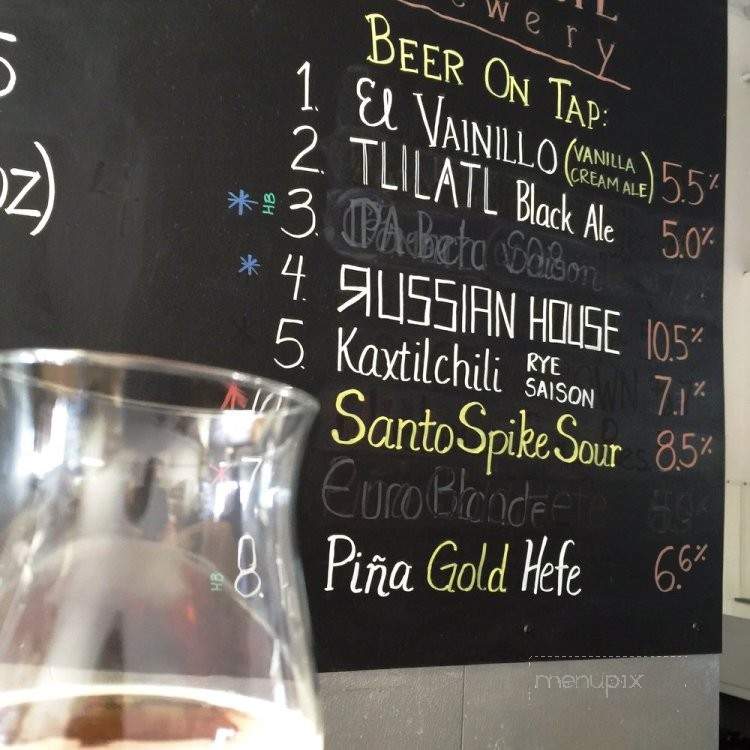 ewery
BEER ON TAP:
1. El VAINILLO (VANILLA CREAM ALE) 5.5%
2. TLILATL Black Ale 5.0%
HB 3.
4. RUSSIAN HOUSE 10.5%
5. Kaxtilchili RYE SAISON 7.1%
Santo Spike Sour 8.5%
7. Euro Blonde
HB 8. Piña Gold Hefe 6.6%
5
oz)
menupix